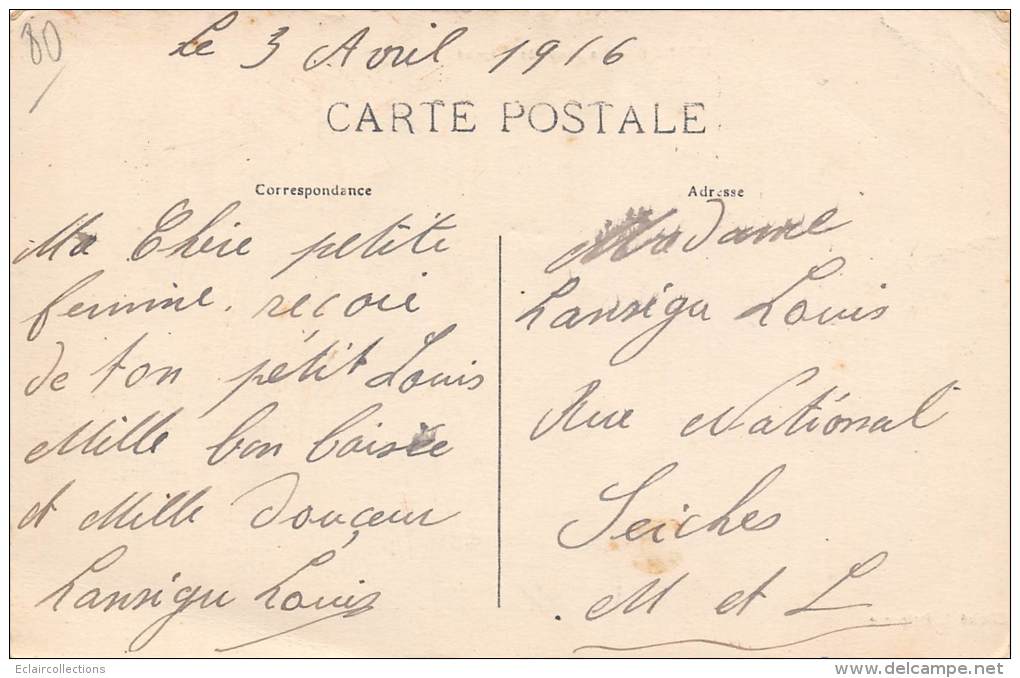 80
Le 3 Avril 1916
CARTE POSTALE
Correspondance
Ma Chère petite
femme. reçoie
de ton pétit Louis
Mille bon baisée
et Mille douçeur
Lansigu Louis
Adresse
Madame
Lansigu Louis
Rue National
Seiches
M et L
Eclaircollections
www.delcampe.net